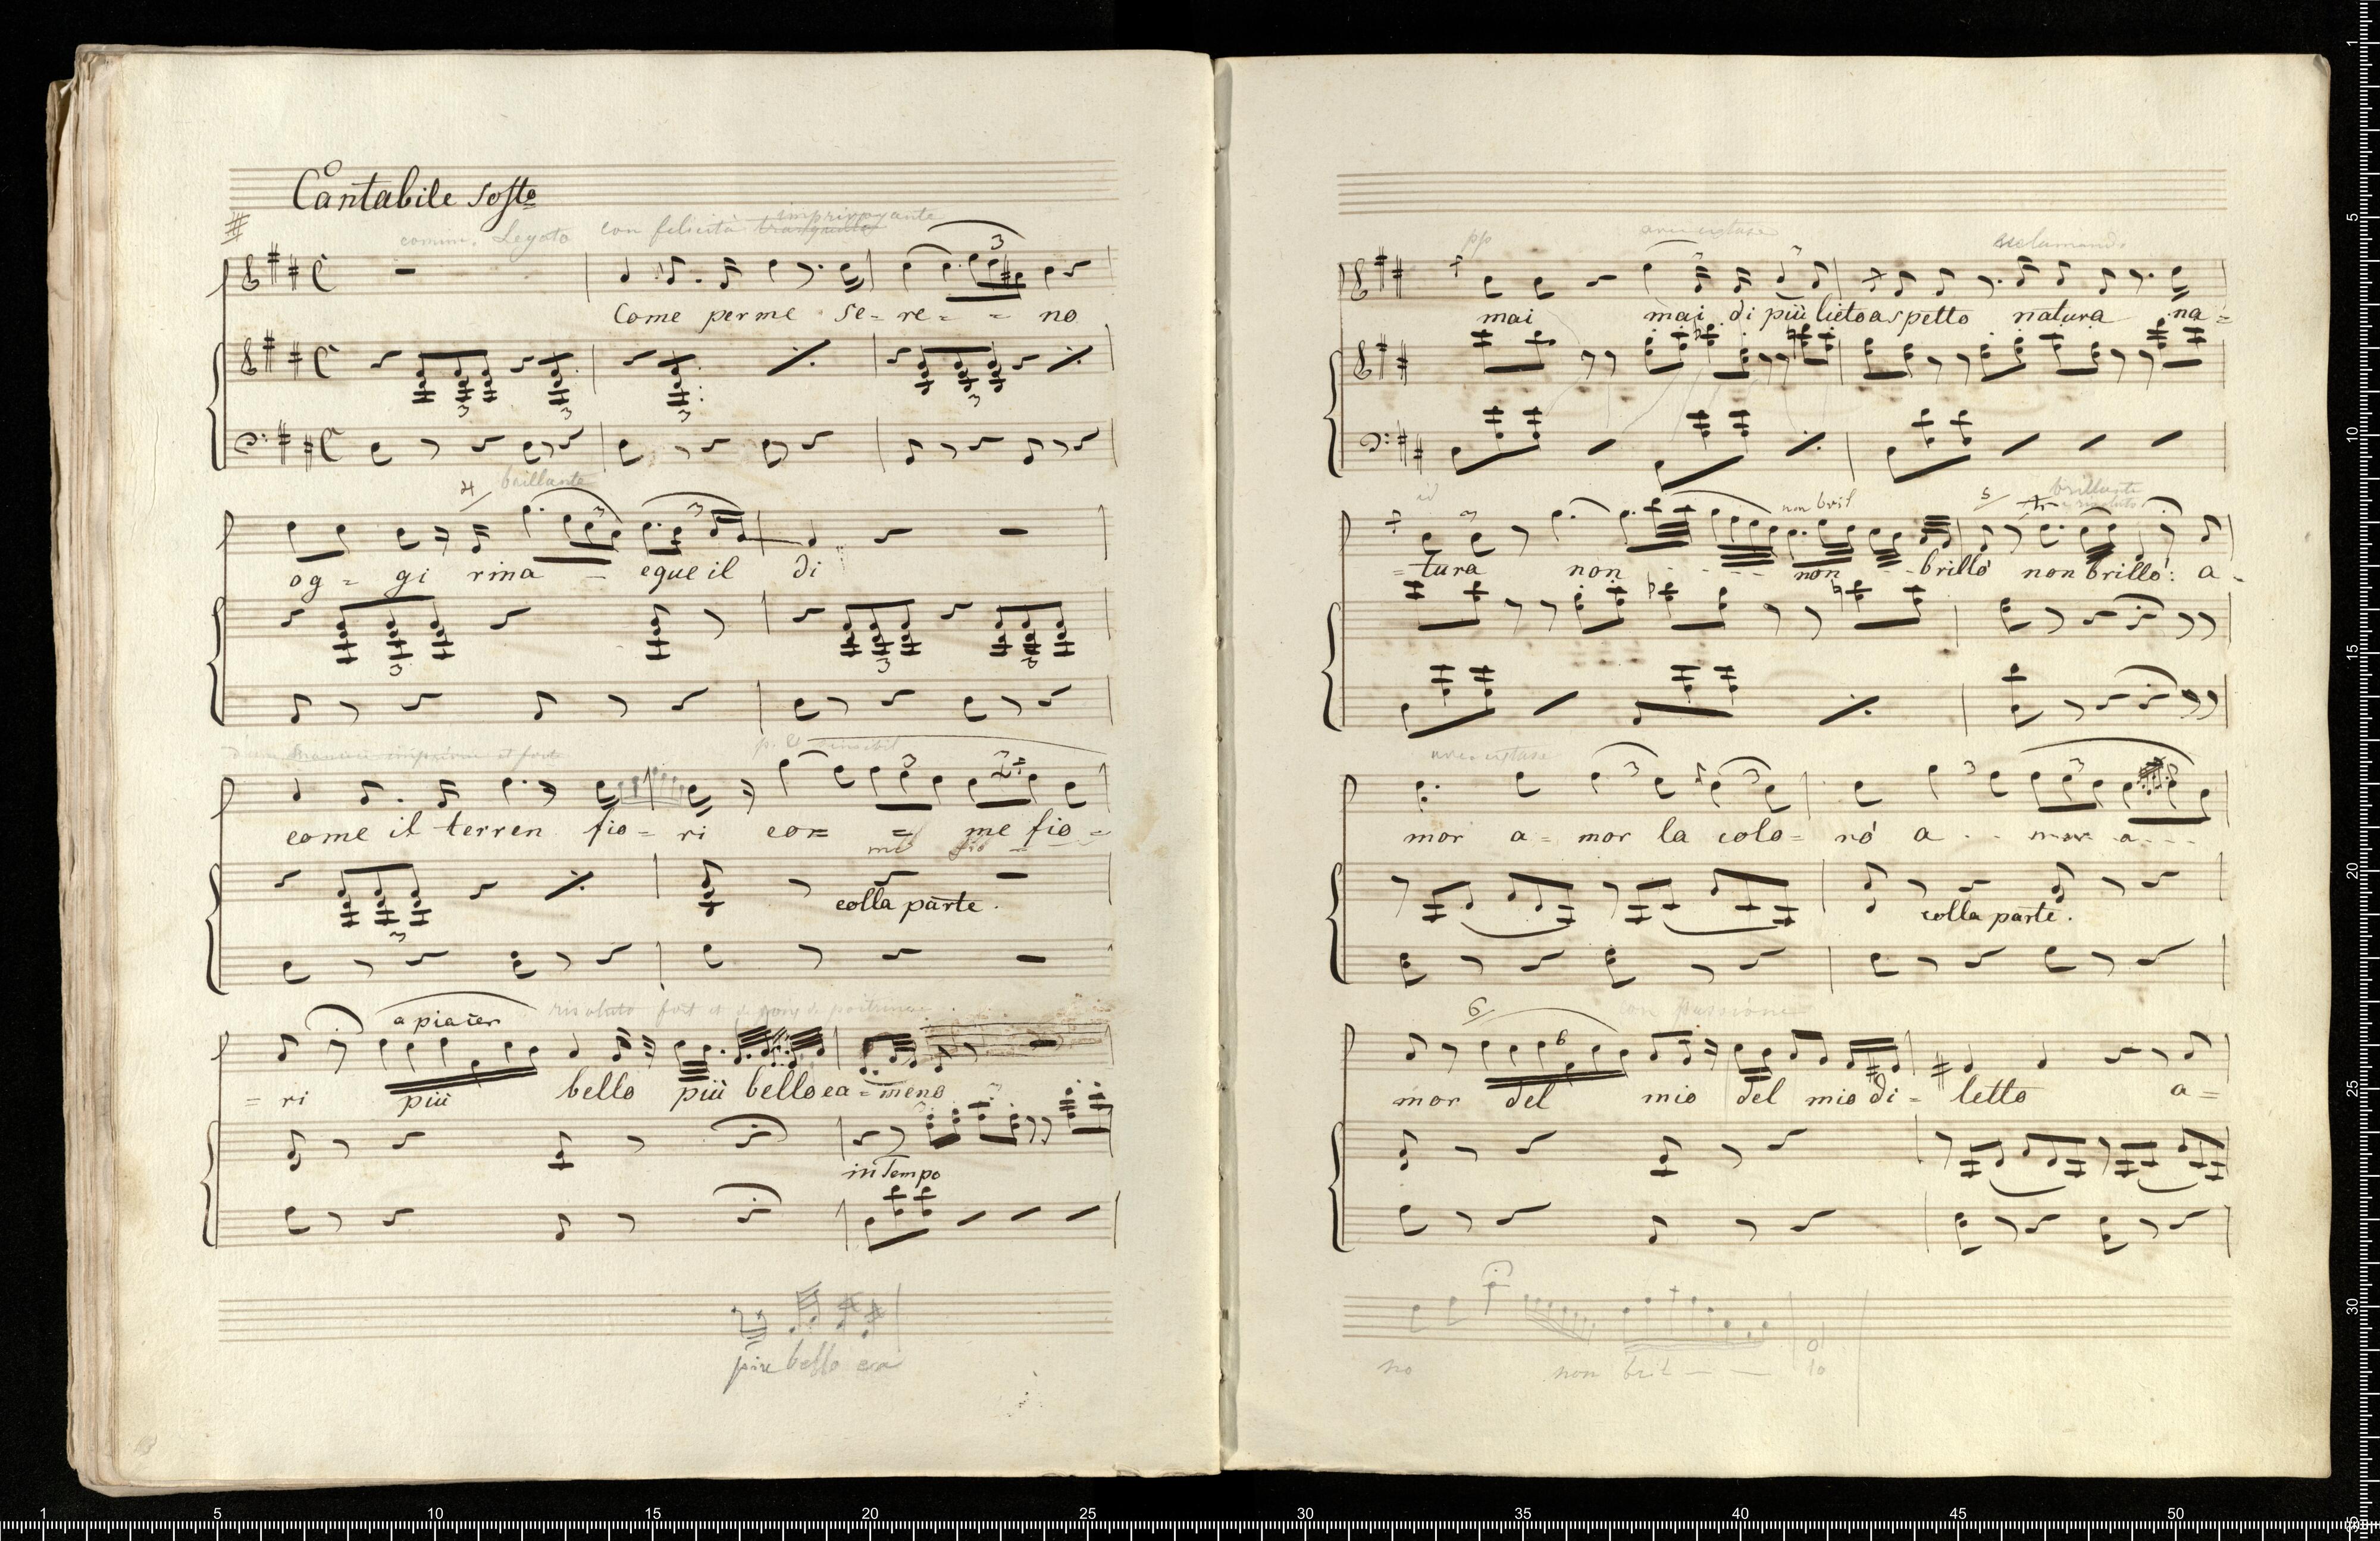 Cantabile sosto
Legato con felicità
Come per me se = re = = no
brillante
og = gi rina - eque il di
come il terren fio = ri com = me fio =
colla parte.
a piacer risoluto
= ri più bello più bello ea = meno
in Tempo
più bello ea
pp
mai mai di più lieto aspetto natura na =
non bril brillante
= tura non - - - - non - - brillò non brillò: a -
mor a = mor la colo = rò a - - mor a - - -
colla parte.
con passione
mor del mio del mio di = letto a =
no non bril — — lo